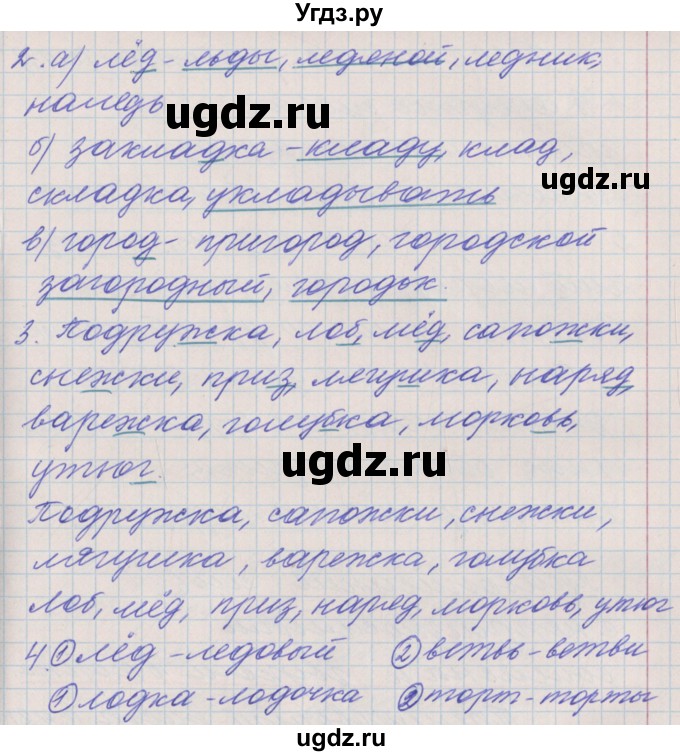 Угдз.ру
2. а) лёд - льды, ледяной, ледник,
наледь
ugdz.ru
б) закладка - кладу, клад,
ugdz.ru
складка, укладывать
в) город - пригород, городской
загородный, городок.
3. Подружка, лоб, мёд, сапожки,
снежки, приз, лягушка, наряд,
варежка, голубка, морковь,
утюг.
ugdz.ru
Подружка, сапожки, снежки,
лягушка, варежка, голубка
Лоб, мёд, приз, наряд, морковь, утюг
4. ① лёд - ледовый ② ветвь - ветви
① лодка - лодочка ② торт - торты
ugdz.ru
ugdz.ru